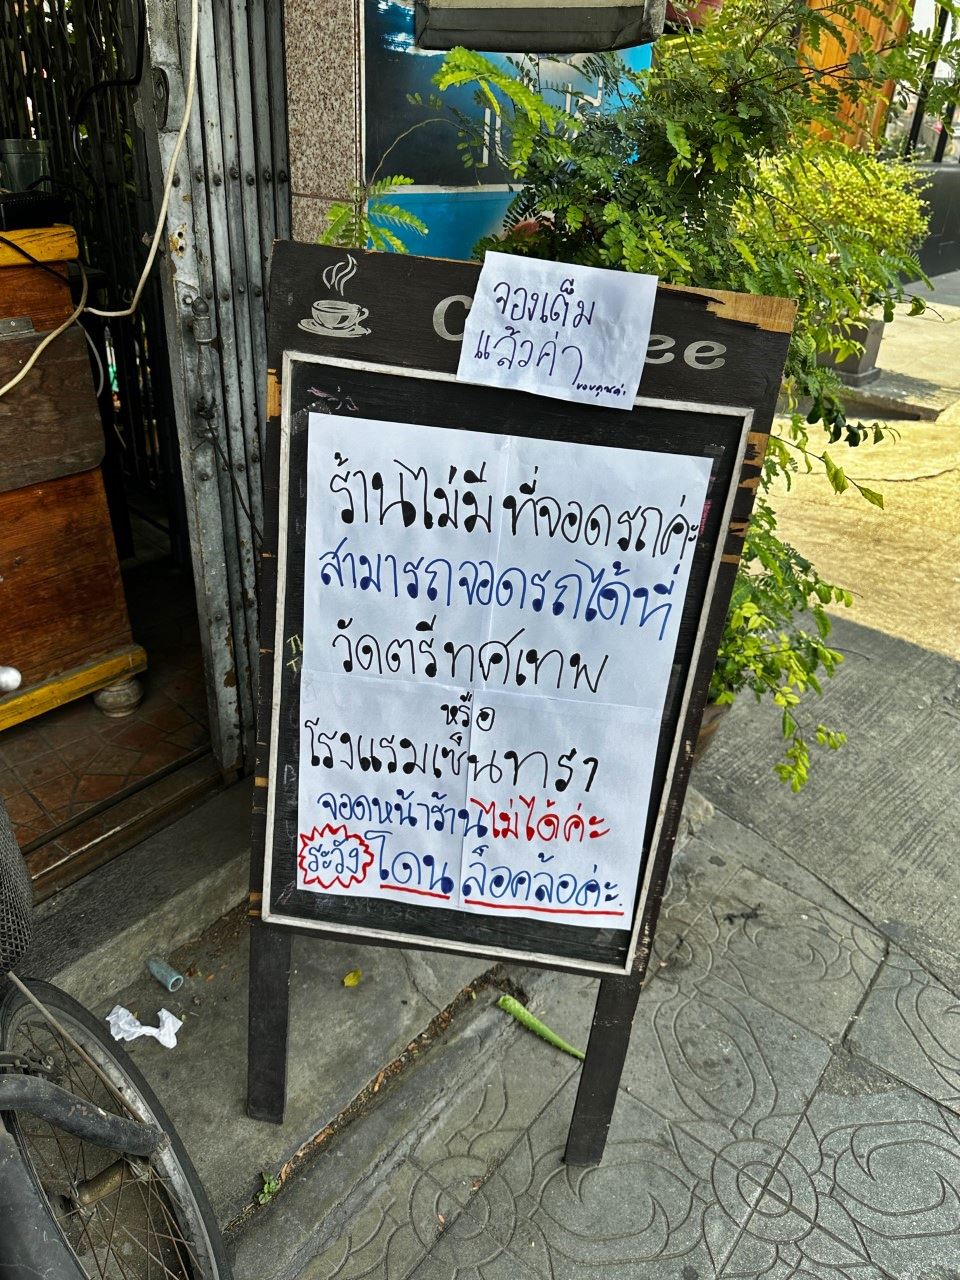 จองเต็ม
แล้วค่า
ขอบคุณค่ะ
ร้านไม่มีที่จอดรถค่ะ
สามารถจอดรถได้ที่
วัดตรีทศเทพ
หรือ
โรงแรมเซ็นทรา
จอดหน้าร้านไม่ได้ค่ะ
ระวังโดนล็อคล้อค่ะ.